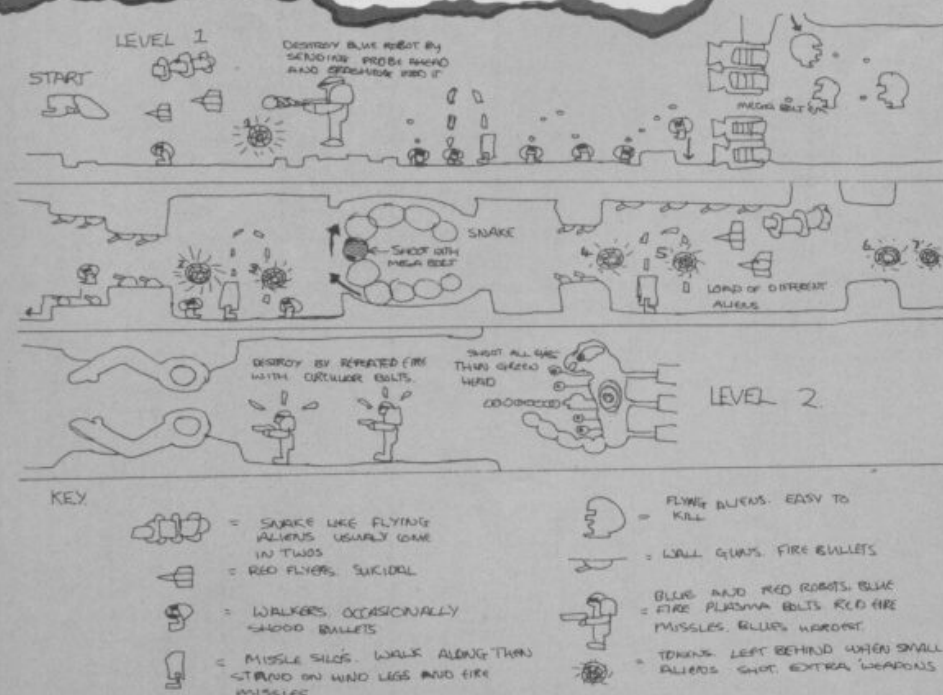 LEVEL 1
START
DESTROY BLUE ROBOT BY
SENDING PROBE AHEAD
AND CRASHING INTO IT
1
MEGA BOLT
2
3
SNAKE
SHOOT WITH
MEGA BOLT
4
5
LOAD OF DIFFERENT
ALIENS
6
7
DESTROY BY REPEATED FIRE
WITH CIRCULAR BOLTS.
SHOOT ALL EYES
THEN GREEN
HEAD
LEVEL 2.
KEY
= SNAKE LIKE FLYING
ALIENS USUALLY COME
IN TWOS
= RED FLYERS. SUICIDAL
= WALKERS. OCCASIONALLY
SHOOD BULLETS
= MISSLE SILO'S. WALK ALONG THEN
STAND ON HIND LEGS AND FIRE
MISSLES
= FLYING ALIENS. EASY TO
KILL
= WALL GUNS. FIRE BULLETS
= BLUE AND RED ROBOTS. BLUE
FIRE PLASMA BOLTS RED FIRE
MISSLES. BLUES HARDEST.
= TOKENS. LEFT BEHIND WHEN SMALL
ALIENS SHOT. EXTRA WEAPONS